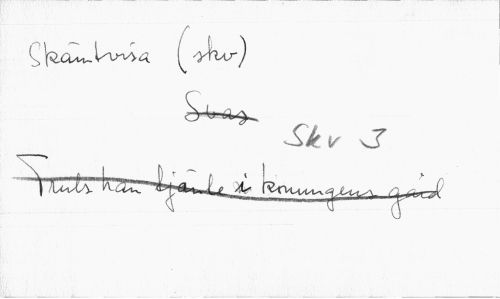 Skämtvisa (skv)
Svas
Skv 3
Truls han tjänte i konungens gård